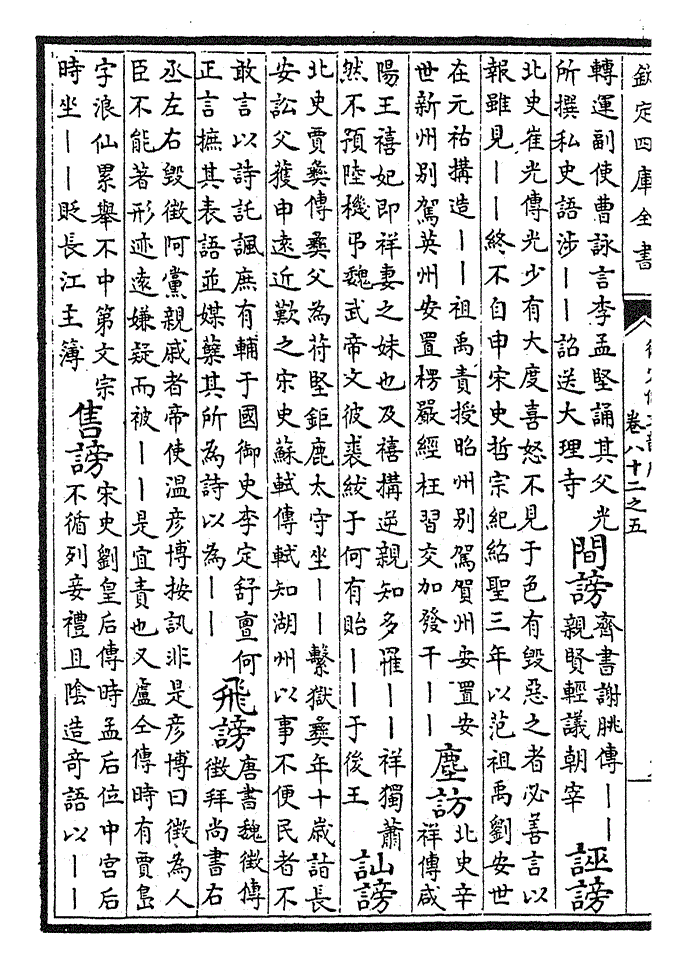 欽定四庫全書
卷八十二之五
轉運副使曹詠言李孟堅誦其父光
所撰私史語涉——詔送大理寺
間謗
齊書謝朓傳——
親賢輕議朝宰
誣謗
北史崔光傳光少有大度喜怒不見于色有毀惡之者必善言以
報雖見——終不自申宋史哲宗紀紹聖三年以范祖禹劉安世
在元祐搆造——祖禹責授昭州別駕賀州安置安
世新州別駕英州安置楞嚴經枉習交加發于——
塵訪
北史辛
祥傳咸
陽王禧妃即祥妻之妹也及禧搆逆親知多罹——祥獨蕭
然不預陸機弔魏武帝文彼裘紱于何有貽——于後王
訕謗
北史賈彝傳彝父為苻堅鉅鹿太守坐——繫獄彝年十歲詣長
安訟父獲申遠近歎之宋史蘇軾傳軾知湖州以事不便民者不
敢言以詩託諷庶有輔于國御史李定舒亶何
正言摭其表語並媒蘖其所為詩以為——
飛謗
唐書魏徵傳
徵拜尚書右
丞左右毀徵阿黨親戚者帝使溫彥博按訊非是彥博曰徵為人
臣不能著形迹遠嫌疑而被——是宜責也又盧仝傳時有賈島
字浪仙累舉不中第文宗
時坐——貶長江主簿
售謗
宋史劉皇后傳時孟后位中宮后
不循列妾禮且陰造奇語以——